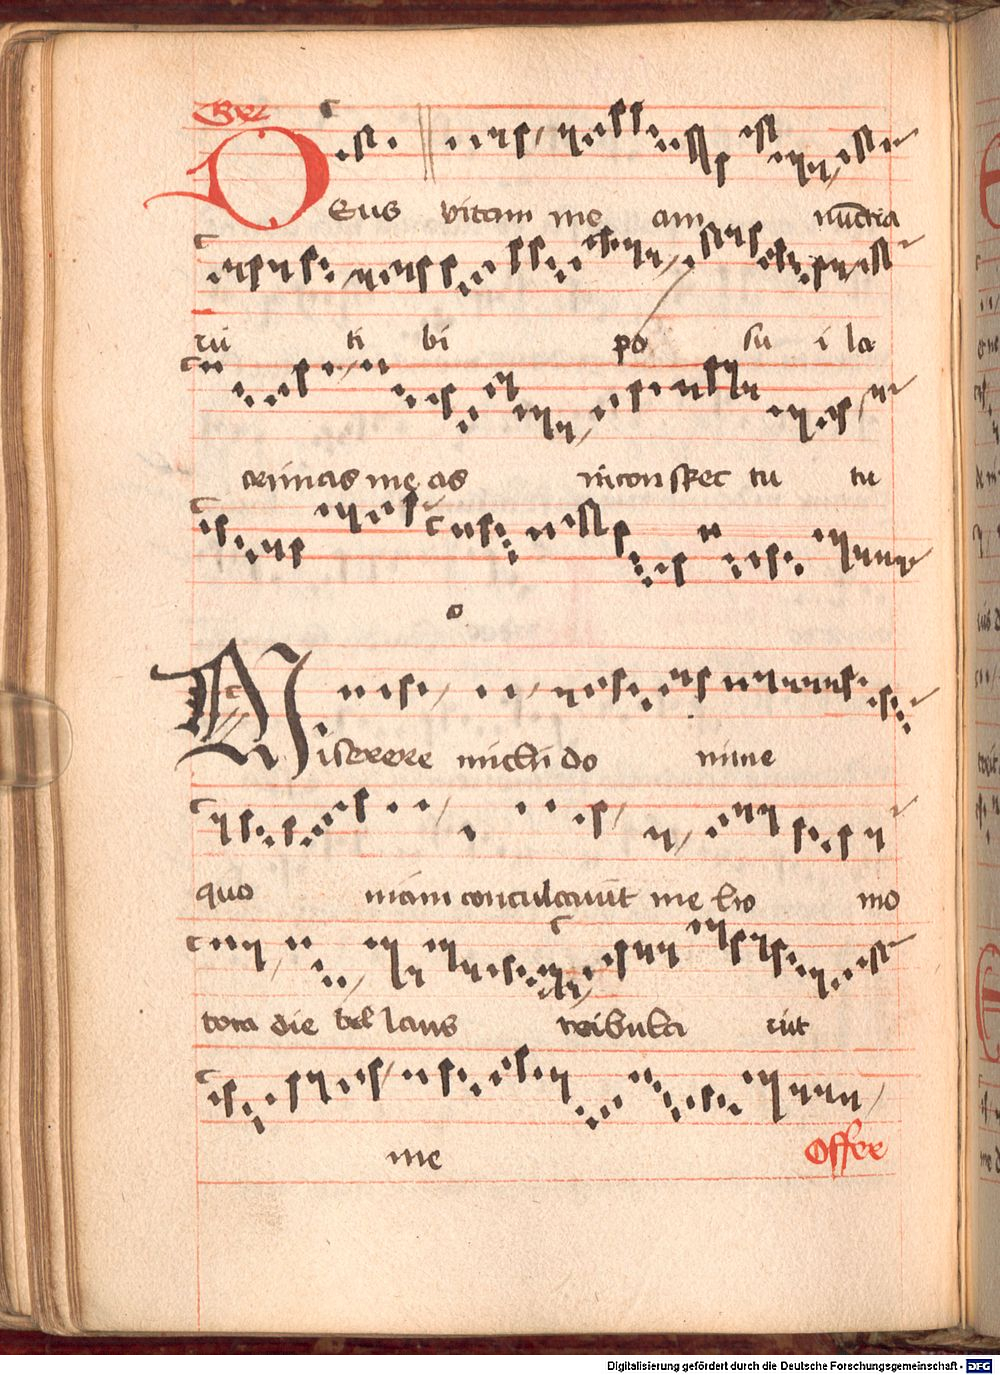 Gr
Deus vitam me am nūctia
tibi posui la
crimas meas in conspec tu tu
o
Miserere michi do mine
quo niam conculcavit me ho mo
tota die bel lans tribula vit
me
Offer
Digitalisierung gefördert durch die Deutsche Forschungsgemeinschaft - DFG